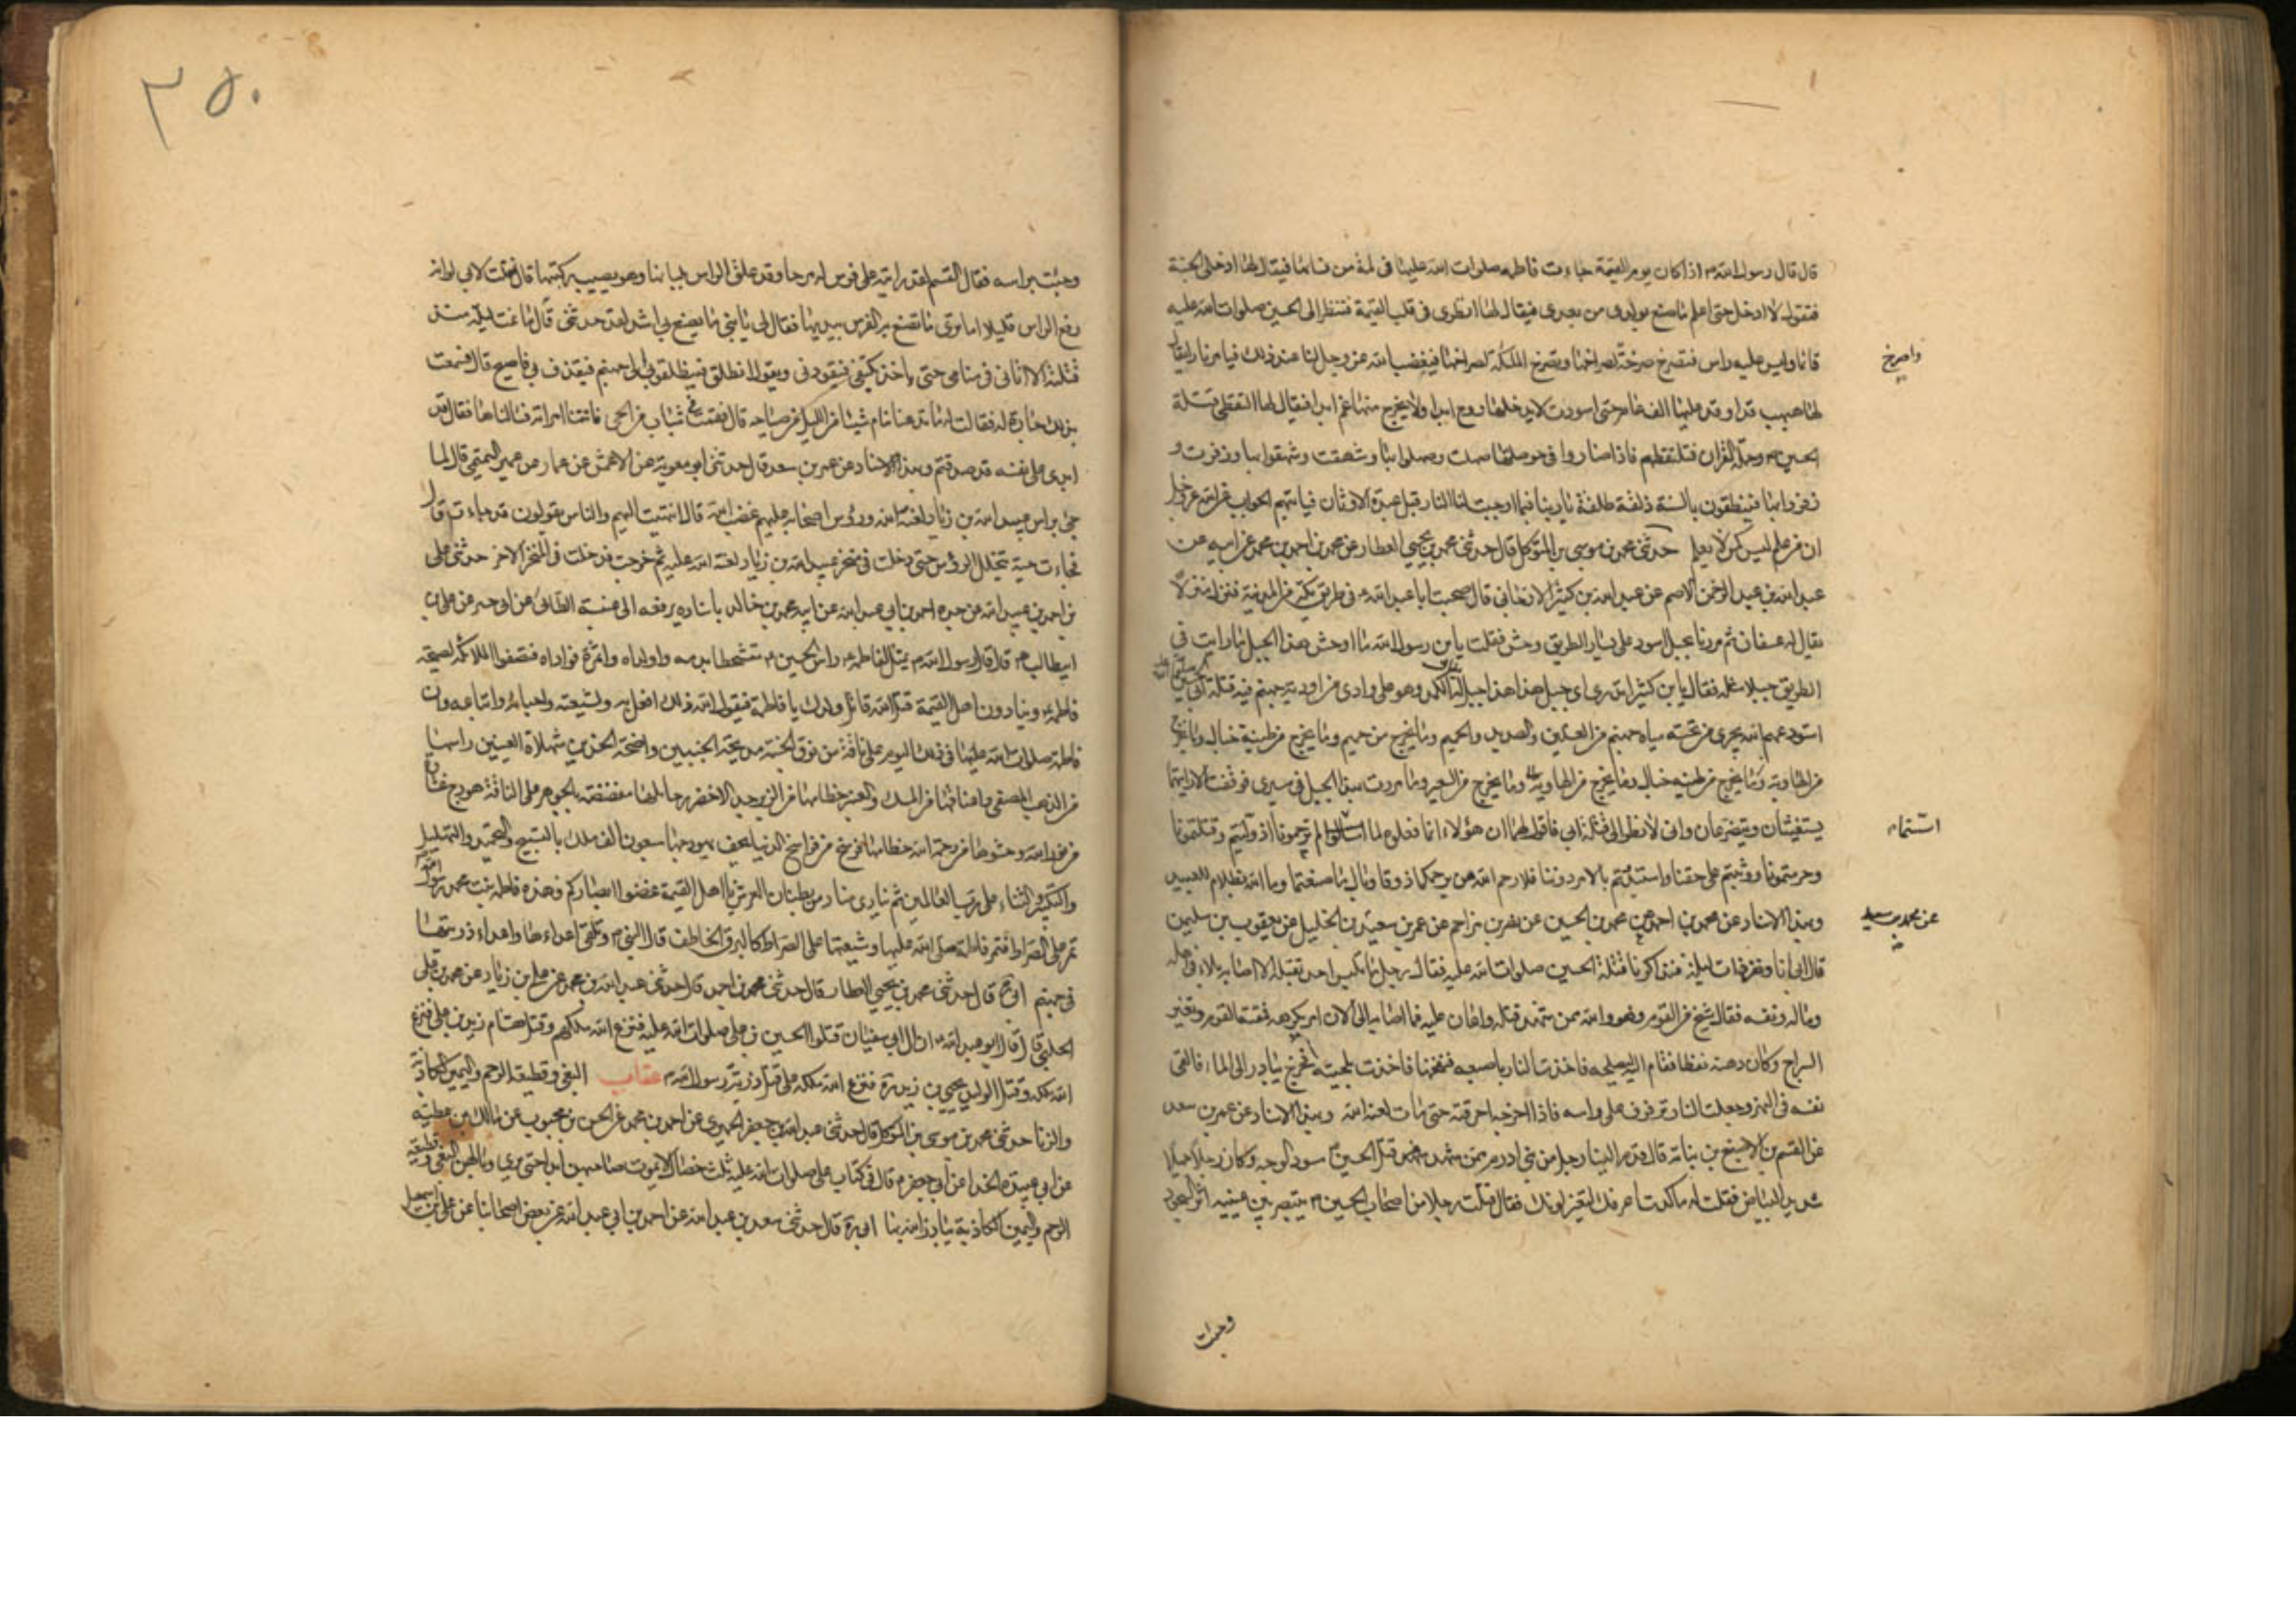 قال قال رسول الله ص اذا كان يوم القيمة جاءت فاطمه صلوات الله عليها في لمة من نسائها فيقال لها ادخلى الجنة
فتقول لا ادخل حتى اعلم ما صنع بولدى من بعدى فيقال لها انظرى فى قلب القيمة فتنظر الى الحسين صلوات الله عليه
قائما وليس عليه راس فتصرخ صرخة لصراخها وتصرخ الملئكة لصراخها فيغضب الله عز وجل لنا عند ذلك فيامر نارا يقال
واصرخ
لها هبهب قد اوقد عليها الف عام حتى اسودت لا يدخلها روح ابدا ولا يخرج منها غم ابدا فيقال لها التقطى قتلة
الحسين ع وحملة القران فتلتقطهم فاذا صاروا فى حوصلتها صهلت وصهلوا بها وشهقت وشهقوا بها وزفرت و
زفروا بها فينطقون بالسنة ذلقة طلقة يا ربنا فيما اوجبت لنا النار قبل عبدة الاوثان فياتيهم الجواب عن الله عز وجل
ان من علم ليس كمن لا يعلم حدثنى محمد بن موسى بن المتوكل قال حدثنى محمد بن يحيى العطار عن محمد بن احمد بن محمد عن ابيه عن
عبد الله بن عبد الرحمن الاصم عن عبد الله بن بكير الارجانى قال صحبت ابا عبد الله ع فى طريق مكة من المدينة فنزل منزلا
يقال له عسفان ثم مررنا بجبل اسود على يسار الطريق وحش فقلت يا بن رسول الله ما اوحش هذا الجبل ما رايت فى
الطريق جبلا مثله فقال يا بن كثير اتدرى اى جبل هذا هذا جبل يقال له الكمد وهو على وادى من اودية جهنم فيه قتلة ابى الحسين
استودعهم الله يجرى من تحته مياه جهنم من الغسلين والصديد والحميم وما يخرج من جهنم وما يخرج من طينة خبال وما يخرج
من الهاوية وما يخرج من طينه خبال وما يخرج من الهاوية وما يخرج من السعير وما مررت بهذا الجبل فى سيرى فوقفت الا رايتهما
يستغيثان ويتضرعان وانى لانظر الى قتلة ابى فاقول لهما ان هؤلاء انما فعلوا لما اسستما لم ترحمونا اذ وليتم وقتلتمونا
اسستماه
وحرمتمونا ووثبتم على حقنا واستبددتم بالامر دوننا فلا رحم الله من يرحمكما ذوقا وبال ما صنعتما وما الله بظلام للعبيد
وبهذا الاسناد عن محمد بن احمد عن محمد بن الحسين عن نصر بن مزاحم عن عمر بن سعيد بن الخليل عن يعقوب بن سليمن
عن محمد بن سعيد
قال انا ونفر ذات ليلة فتذاكرنا قتلة الحسين صلوات الله عليه فقال رجل ما تلبس احد بقتله الا اصابه بلاء فى اهله
وماله ونفسه فقال شيخ من القوم وهو والله ممن شهد قتله واعان عليه فما اصابه الى الان امر يكرهه فمقته القوم وتغير
السراج وكان دهنه نفطا فقام اليه ليصلحه فاخذت النار باصبعه فنفخها فاخذت بلحيته فخرج يبادر الى الماء فالقى
نفسه فى النهر وجعلت النار ترفرف على راسه فاذا اخرجه احرقته حتى مات لعنه الله وبهذا الاسناد عن عمر بن سعد
عن القسم بن الاصبغ بن نباته قال قدم الينا رجل من بنى ادرم ممن شهد قتل الحسين ع اسود الوجه وكان رجلا جميلا
شديد البياض فقلت له ما كدت اعرفك لتغير لونك فقال قتلت رجلا من اصحاب الحسين ع يبصر بين عينيه اثر السجود
وجئت
٣٥٠
وجئت براسه فقال القسم لقد رايته على فرس له مرحا وقد علق الراس بلبانها وهو يصيب ركبتها قال فقلت لابى لو انه
رفع الراس قليلا اما ترى ما تصنع به الفرس بيديها فقال لى يا بنى ما يصنع به اشد لقد حدثنى قال ما نمت ليلة منذ
قتلته الا اتانى فى منامى حتى ياخذ بكتفى فيقودنى ويقول انطلق فينطلق بى الى جهنم فيقذف بى فاصيح قال فسمعت
بذلك جارة له فقالت ما يدعنا ننام شيئا من الليل من صياحه قال فقمت فى شباب من الحى فاتينا امراته فسالناها فقالت قد
ابدى على نفسه قد صدقكم وبهذا الاسناد عن عمر بن سعد قال حدثنى ابو معوية عن الاعمش عن عمار بن عمير التميمى قال لما
جئ براس عبيد الله بن زياد لعنه الله وروس اصحابه عليهم غضب الله قال انتهيت اليهم والناس يقولون قد جاءت قال
فجاءت حية تتخلل الروس حتى دخلت فى منخر عبيد الله بن زياد لعنة الله عليه ثم خرجت فدخلت فى المنخر الاخر حدثنى على
بن احمد بن عبد الله عن جده احمد بن ابى عبد الله عن ابيه محمد بن خالد باسناده يرفعه الى عنبسة الطائى عن ابى جبير عن على بن
ابيطالب ع قال قال رسول الله ص يمثل لفاطمه ع راس الحسين ع متشحطا بدمه فتصيح وا ولداه وا ثمرة فواداه فتصعق الملائكة لصيحة
فاطمه ع وينادون اهل القيمة قتل الله قاتل ولدك يا فاطمة فيقول الله ذلك افعل به وبشيعته واحبائه واتباعه وان
فاطمة صلوات الله عليها فى ذلك اليوم على ناقة من نوق الجنة مدبجة الجنبين واضحة الخدين شهلاء العينين راسها
من الذهب المصفى واعناقها من المسك والعنبر خطامها من الزبرجد الاخضر رحائلها مفضضه بالجوهر على الناقة هودج غشاؤه
من نور الله وحشوها من رحمة الله خطامها فرسخ من فراسخ الدنيا يحف بهودجها سبعون الف ملك بالتسبيح والتحميد والتهليل
والتكبير والثناء على رب العالمين ثم ينادى مناد من بطنان العرش يا اهل القيمة غضوا ابصاركم فهذه فاطمه بنت محمد رسول الله ص
تمر على الصراط فتمر فاطمه صلى الله عليها وشيعتها على الصراط كالبرق الخاطف قال النبى ص وتلقى اعداءها واعداء ذريتها
فى جهنم ابى ره قال حدثنى محمد بن يحيى العطار قال حدثنى محمد بن احمد قال حدثنى عبد الله بن محمد عن على بن زياد عن محمد بن على
الحلبى قال قال ابو عبد الله ع ان ال ابى سفيان قتلوا الحسين بن على صلوات الله عليه فنزع الله ملكهم وقتل هشام زيد بن على فنزع
الله ملكه وقتل الوليد يحيى بن زيد ره فنزع الله ملكه على قتل ذرية رسول الله ص عقاب البغى وقطيعة الرحم واليمين الكاذبة
والزنا حدثنى محمد بن موسى بن المتوكل قال حدثنى عبد الله بن جعفر الحميرى عن احمد بن محمد عن الحسن بن محبوب عن مالك بن عطيه
عن ابى عبيدة الحذا عن ابى جعفر ع قال فى كتاب على صلوات الله عليه ثلث خصال لا يموت صاحبهن ابدا حتى يرى وبالهن البغى وقطيعة
الرحم واليمين الكاذبة يبارز الله بها ابى ره قال حدثنى سعد بن عبد الله عن احمد بن ابى عبد الله عن بعض اصحابنا عن على بن اسمعيل